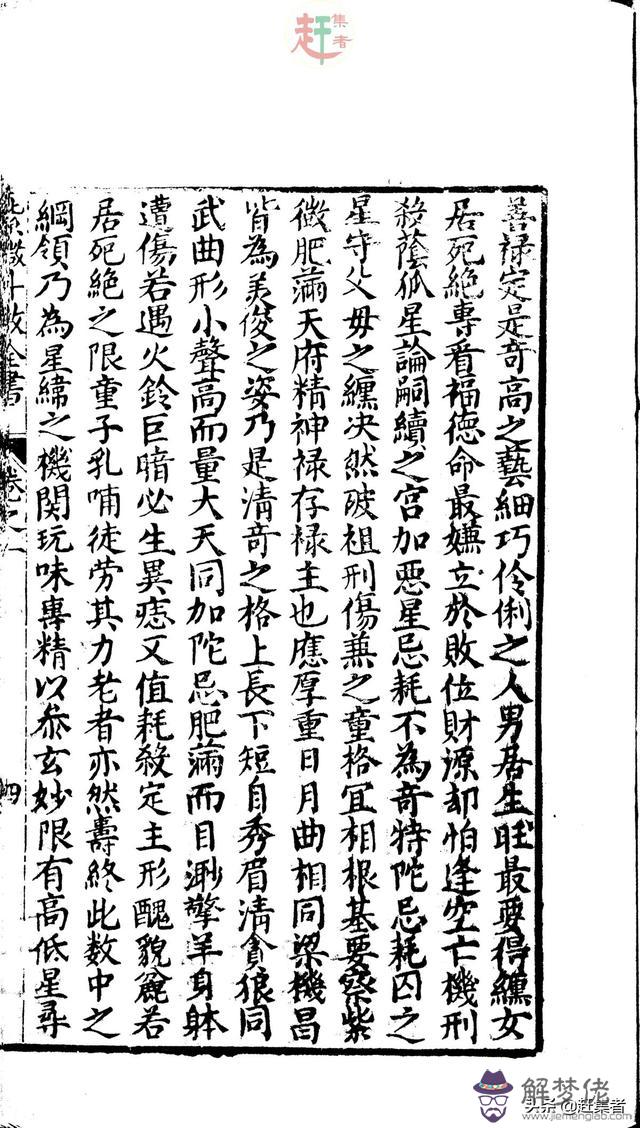 赶集者
善禄定是奇高之藝細巧伶俐之人男居生旺最要得纏女
居死絶專看福德命最嫌立於敗位財源却怕逢空亡機刑
殺蔭孤星論嗣續之宮加惡星忌耗不為奇特陀忌耗囚之
星守父母之纏决然破祖刑傷兼之童格宜相根基要察紫
微肥滿天府精神禄存禄主也應厚重日月曲相同梁機昌
皆為美俊之姿乃是清奇之格上長下短目秀眉清貪狼同
武曲形小聲高而量大天同加陀忌肥滿而目渺擎羊身躰
遭傷若遇火鈴巨暗必生異痣又值耗殺定主形醜貌麄若
居死絶之限童子乳哺徒劳其力老者亦然壽終此数中之
綱領乃為星緯之機関玩味專精以叅玄妙限有高低星尋
紫微斗数全書 卷之一 四
解梦佬
www.jiemenglao.com
头条@赶集者